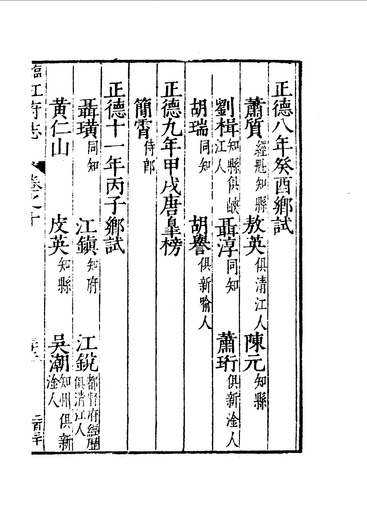 正德八年癸酉鄉試
蕭質經魁知縣 敖英俱清江人 陳元知縣
劉楫知縣俱峽江人 聶淳同知 蕭珩俱新淦人
胡瑞同知 胡譽俱新喻人
正德九年甲戌唐皐榜
簡霄侍郎
正德十一年丙子鄉試
聶璜同知 江鎮知府 江銳都督府經歷俱清江人
黃仁山 皮英知縣 吳潮知州俱新淦人
臨江府志 卷之十